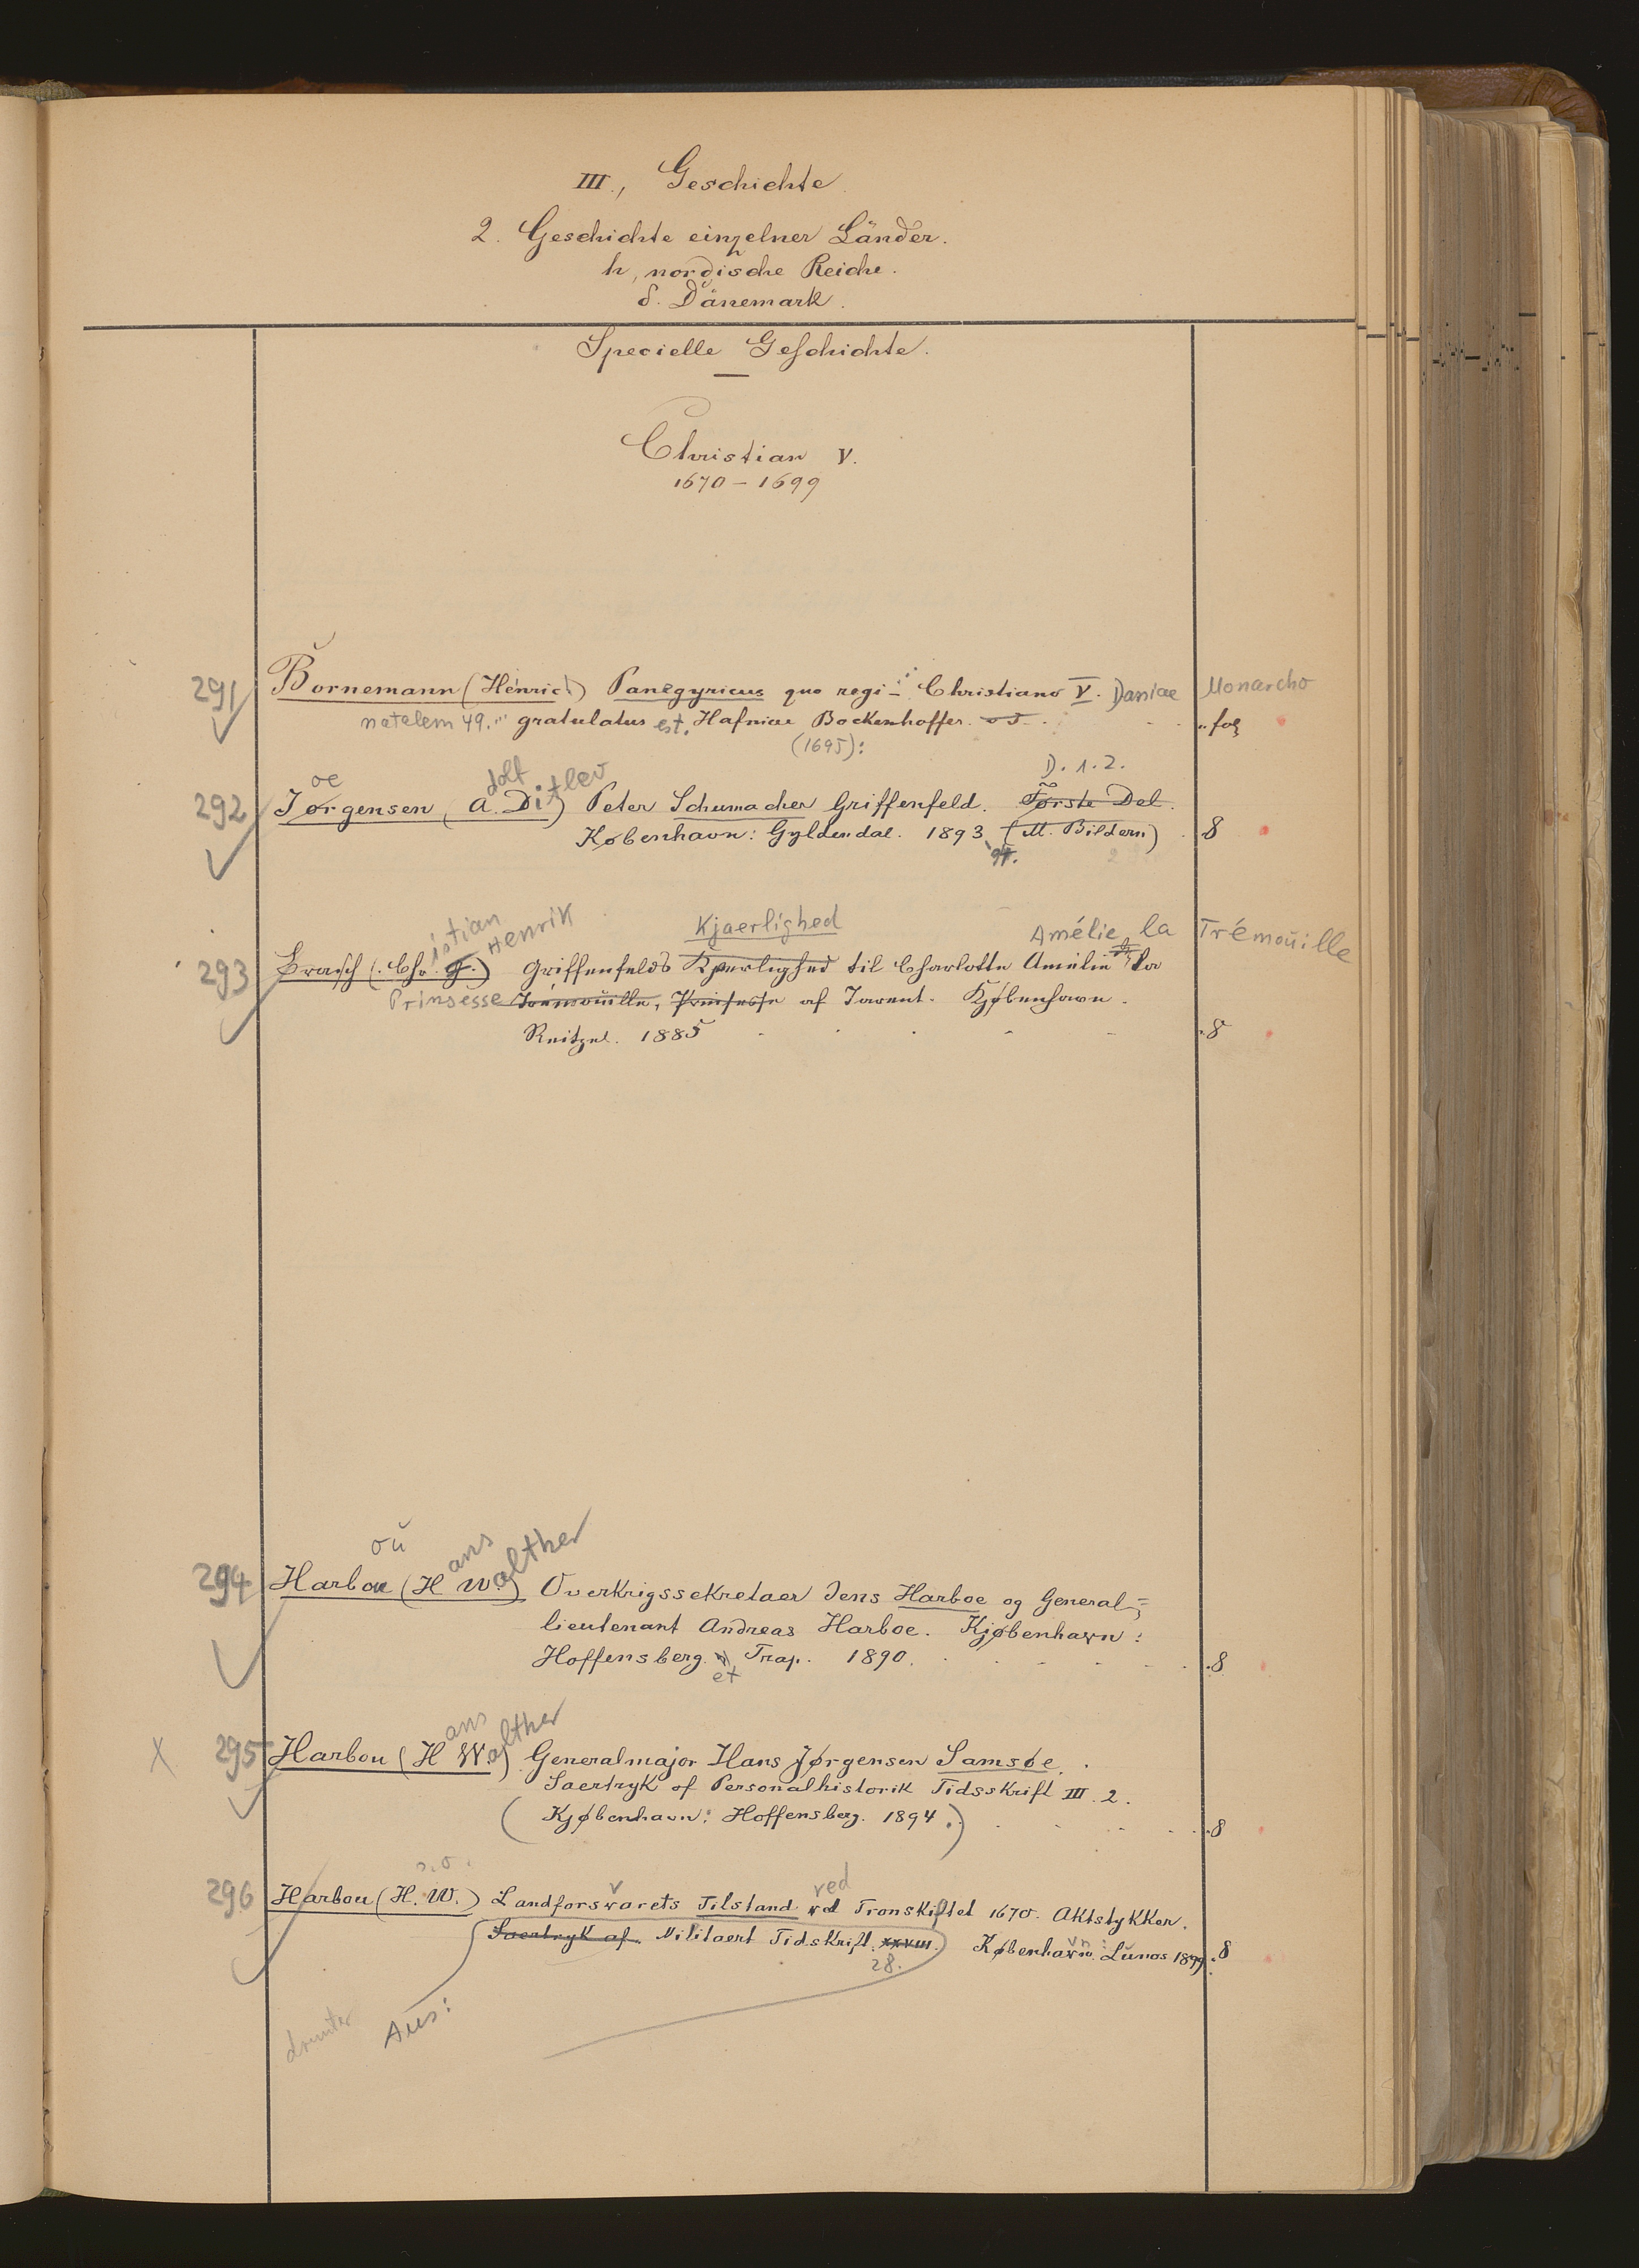 III., Geschichte
2. Geschichte einzelner Länder.
h, nordische Reiche.
δ. Dänemark.
Specielle Geschichte.
Christian V.
1670 – 1699
291 Bornemann (Henrich) Panegyricus quo regi Christiano V. Daniae Monarcho
natalem 49. gratulatus est. Hafniae Bockenhoffer. fol
(1695):
oe dolf tlev D. 1. 2.
292 Jørgensen (A. Di) Peter Schumacher Griffenfeld. Første Del.
København: Gyldendal. 1893 (M. Bildern) 8
94.
istian Henrik Kjaerlighed Amélie la Trémoüille
293 Brasch (Chr. H.) Griffenfelds Kjærlighed til Charlotte Amelie la
Prinsesse Trémouille, Prinsesse af Tarent. Kjøbenhavn.
Reitzel. 1885 8
oŭ ans alther
294 Harbou (H W.) Overkrigssekretaer Jens Harboe og General-
lieutenant Andreas Harboe. Kjøbenhavn:
Hoffensberg Trap. 1890. 8
et
ans alther
X 295 Harbou (H W.) Generalmajor Hans Jørgensen Samsøe.
Saertryk af Personalhistorik Tidsskrift III. 2.
(Kjøbenhavn: Hoffensberg. 1894.) 8
s. o. v ved
296 Harbou (H. W.) Landforsvarets Tilstand ved Tronskiftet 1670. Aktstykker.
Saertryk af Militaert Tidskrift XXVIII. København: Lŭnos 1899. 8
28.
Aus:
drunter